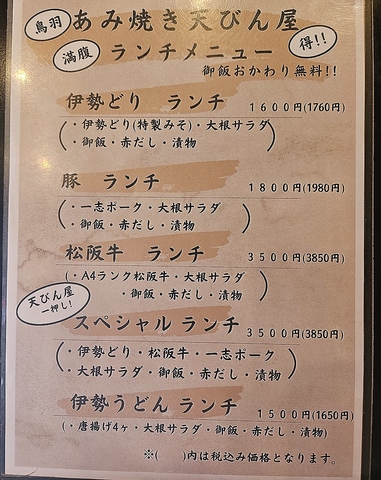 鳥羽 あみ焼き天びん屋
満腹 ランチメニュー 得!!
御飯おかわり無料!!
伊勢どり ランチ 1600円(1760円)
(・伊勢どり(特製みそ)・大根サラダ
・御飯・赤だし・漬物)
豚 ランチ 1800円(1980円)
(・一志ポーク・大根サラダ
・御飯・赤だし・漬物)
松阪牛 ランチ 3500円(3850円)
(・A4ランク松阪牛・大根サラダ
・御飯・赤だし・漬物)
天びん屋
一押し!
スペシャル ランチ 3500円(3850円)
(・伊勢どり・松阪牛・一志ポーク
・大根サラダ・御飯・赤だし・漬物)
伊勢うどん ランチ 1500円(1650円)
(・唐揚げ4ヶ・大根サラダ・御飯・赤だし・漬物)
※( )内は税込み価格となります。